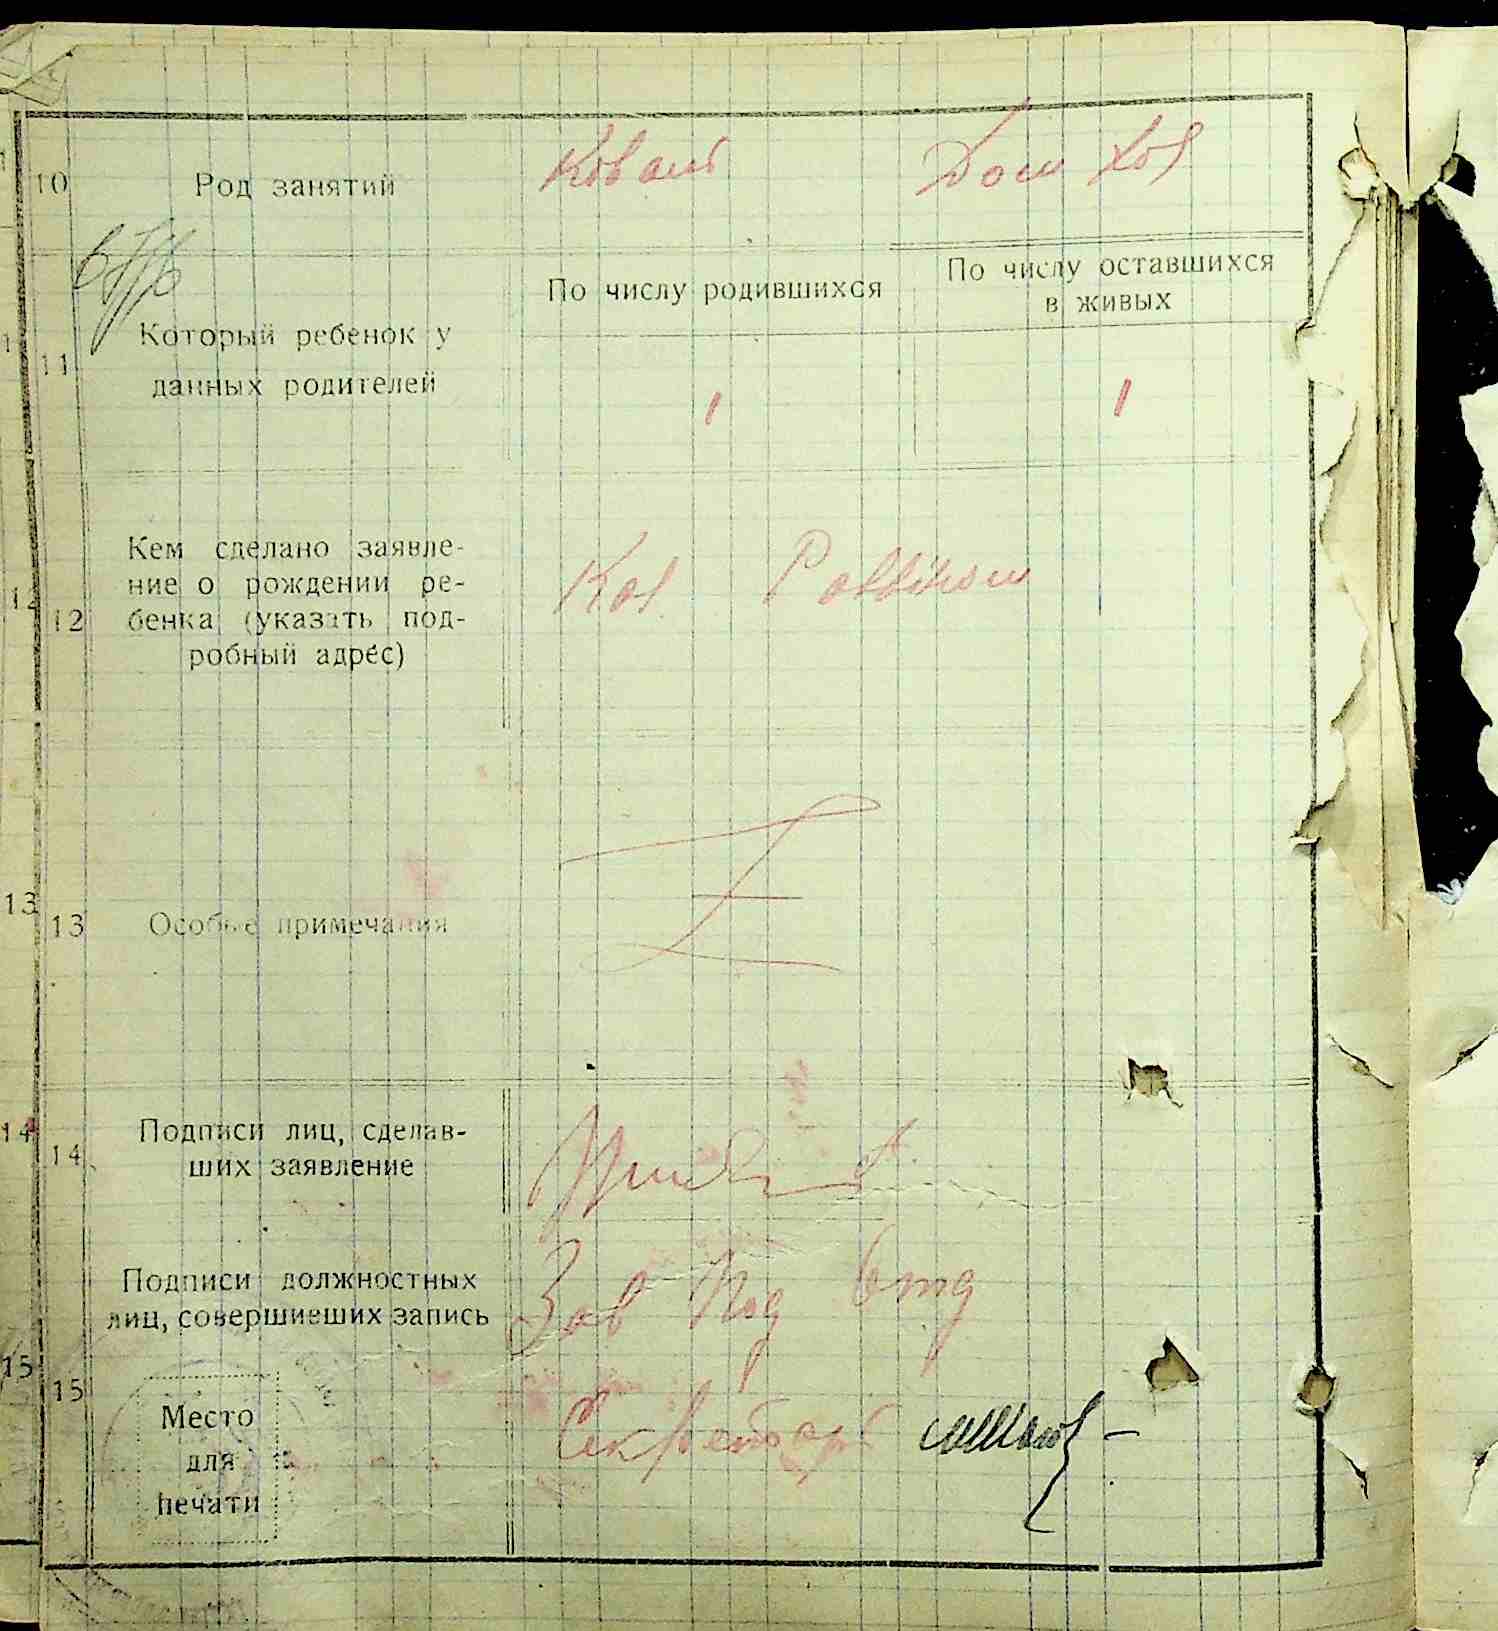 10 Род занятий Коваль Дом Хоз
11 Который ребенок у
данных родителей
По числу родившихся
По числу оставшихся
в живых
1 1
12 Кем сделано заявле-
ние о рождении ре-
бенка (указать под-
робный адрес)
13 Особые примечания
14 Подписи лиц, сделав-
ших заявление
Подписи должностных
лиц, совершивших запись
Зав Под Отд
15
Секретарь
Место
для
печати
12
13
14
15